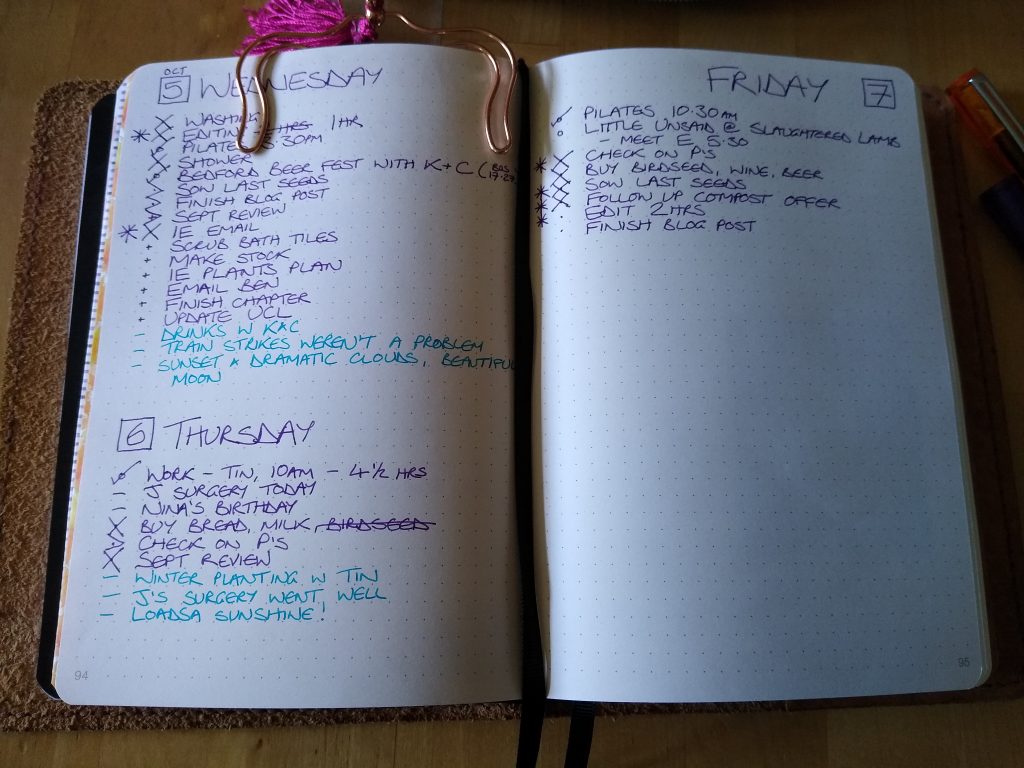 OCT
5 WEDNESDAY
WASHING
EDITING - 2HRS 1HR
PILATES 5.30PM
SHOWER
BEDFORD BEER FEST WITH K+C (BUS 17.27
SOW LAST SEEDS
FINISH BLOG POST
SEPT REVIEW
IE EMAIL
+ SCRUB BATH TILES
+ MAKE STOCK
+ IE PLANTS PLAN
+ EMAIL BEN
+ FINISH CHAPTER
+ UPDATE UCL
- DRINKS W K&C
- TRAIN STRIKES WEREN'T A PROBLEM
- SUNSET & DRAMATIC CLOUDS, BEAUTIFUL
MOON
6 THURSDAY
WORK - TIN, 10AM - 4½ HRS
- J SURGERY TODAY
- NINA'S BIRTHDAY
BUY BREAD, MILK, BIRDSEED
CHECK ON P'S
SEPT REVIEW
- WINTER PLANTING W TIN
- J'S SURGERY WENT WELL
- LOADSA SUNSHINE!
94
FRIDAY 7
PILATES 10.30AM
LITTLE UNSAID @ SLAUGHTERED LAMB
- MEET E, 5.30
CHECK ON P'S
BUY BIRDSEED, WINE, BEER
SOW LAST SEEDS
FOLLOW UP COMPOST OFFER
EDIT 2HRS
FINISH BLOG POST
95